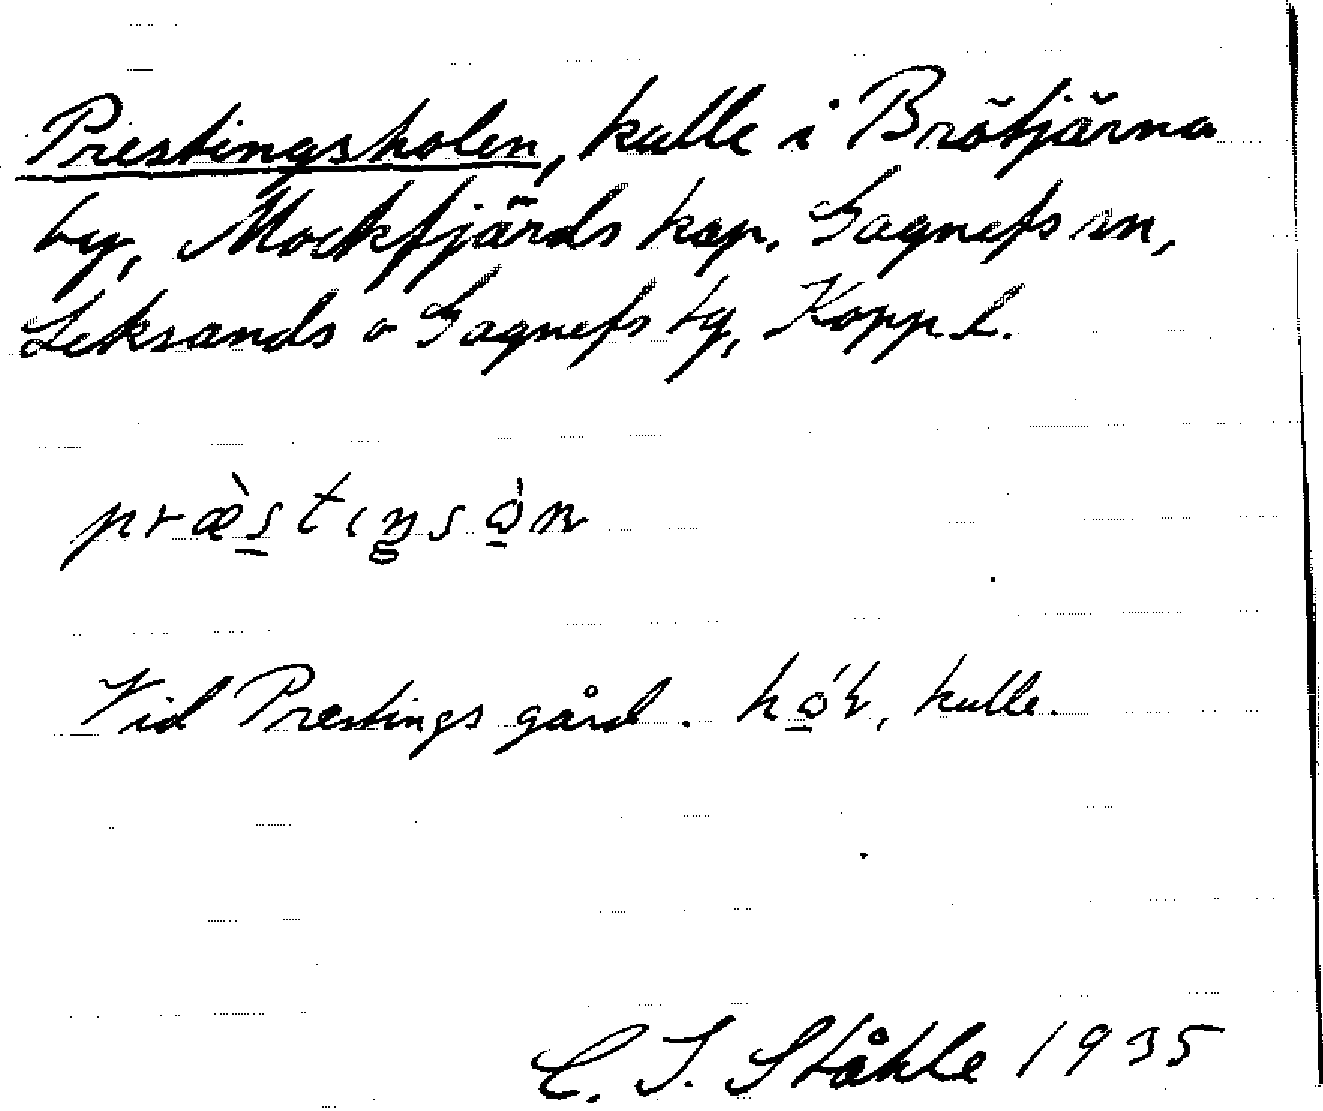 Prestingsholen, kulle i Brötjärna
by, Mockfjärds kap. Gagnefs sn,
Leksands o Gagnefs tg, Kopp L.
præ̀stıŋsò̱n
Vid Prestings gård. hó̱l, kulle.
C. I. Ståhle 1935